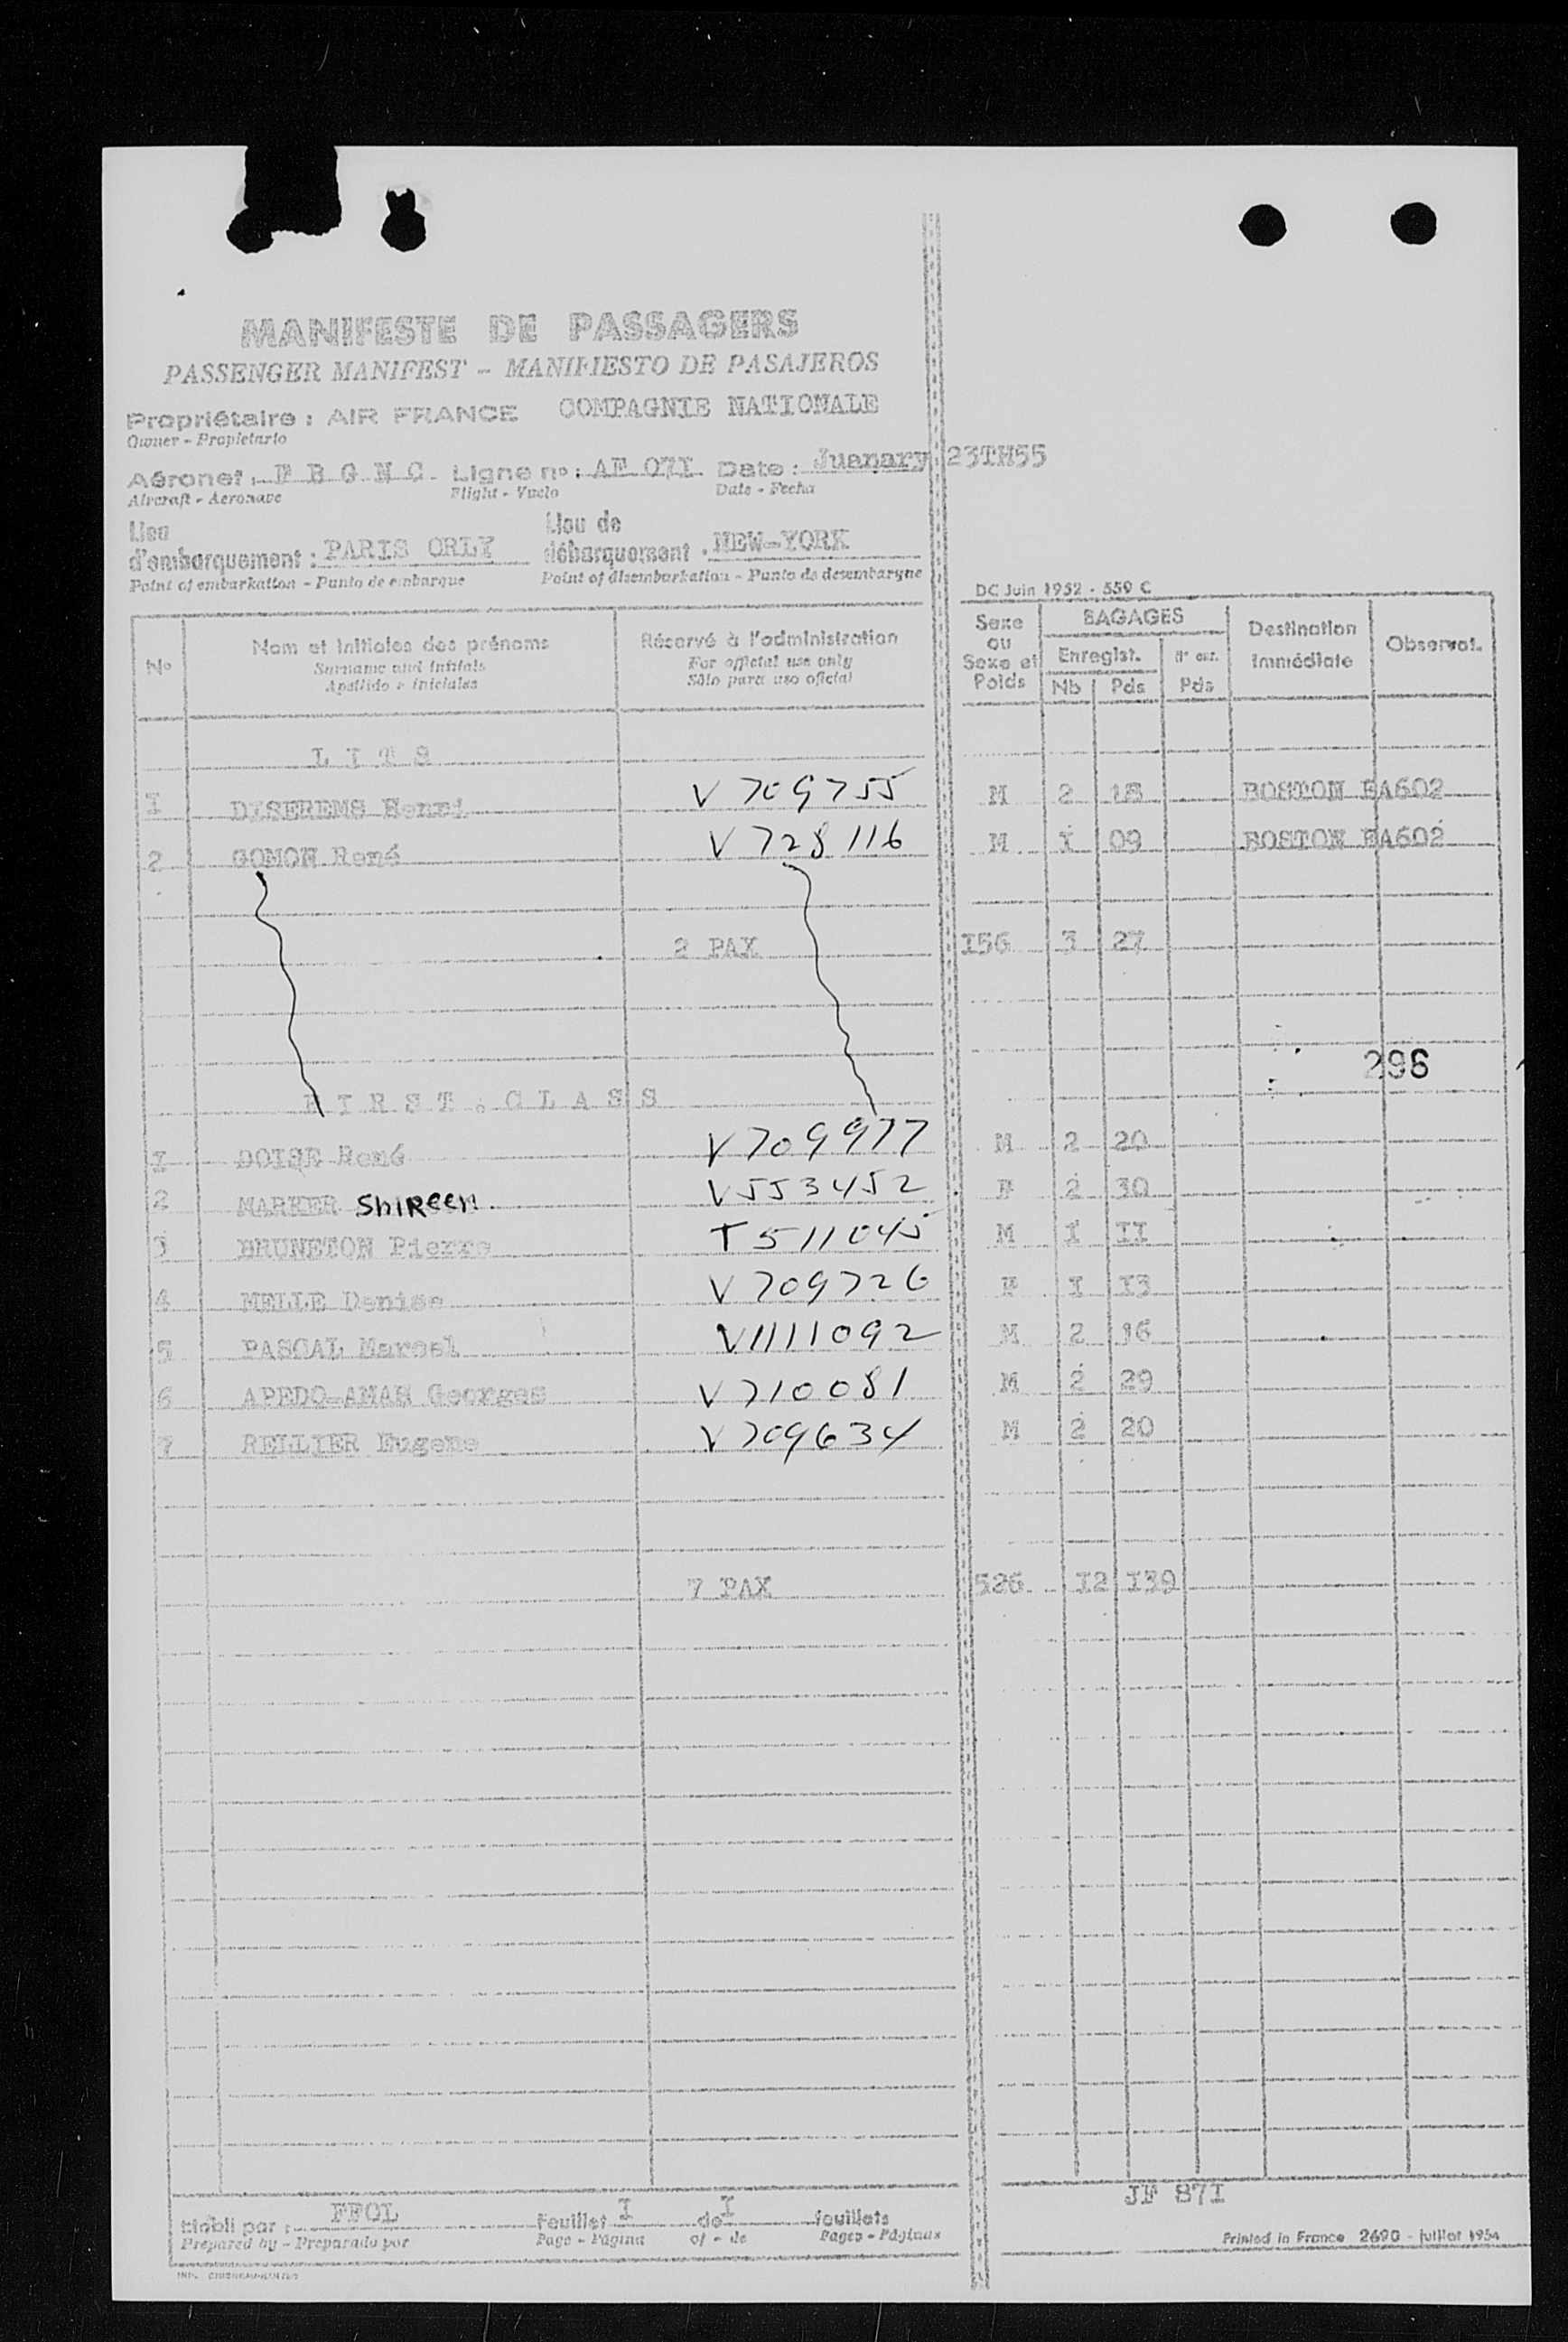 MANIFESTE DE PASSAGERS
PASSENGER MANIFEST - MANIFIESTO DE PASAJEROS
Propriétaire : AIR FRANCE COMPAGNIE NATIONALE
Owner - Propietario
Aéronef : F B G N C Ligne no : AF 07I Date : Juanary 23TH55
Aircraft - Aeronave Flight - Vuelo Date - Fecha
Lieu d'embarquement : PARIS ORLY Lieu de débarquement : NEW-YORK
Point of embarkation - Punto de embarque Point of disembarkation - Punto de desembarque
DC Juin 1952 - 559 C
No Nom et initiales des prénoms Réservé à l'administration Sexe ou Sexe et Poids BAGAGES Enregist. Nb Pds Pds Destination immédiate Observat.
Surname and initials For official use only
Apellido e iniciales Sólo para uso oficial
L I T S
I DISEREMS Henri V 709755 M 2 18 BOSTON EA602
2 GOMON René V 728116 M I 09 BOSTON EA602
2 PAX I56 3 27
296
F I R S T . C L A S S
I DOISE René V709977 M 2 20
2 MARKER ShiREEn. V553452 F 2 30
3 BRUNETON Pierre T511045 M I II
4 MELLE Denise V709726 F I I3
5 PASCAL Marcel V1111092 M 2 16
6 APEDO-AMAH Georges V710081 M 2 29
7 RELLIER Eugene V709634 M 2 20
7 PAX 526 I2 I39
JF 87I
Etabli par : FFOL Feuillet I de I feuillets
Prepared by - Preparado por Page - Página of - de Pages - Páginas
Printed in France 2690 - juillet 1954